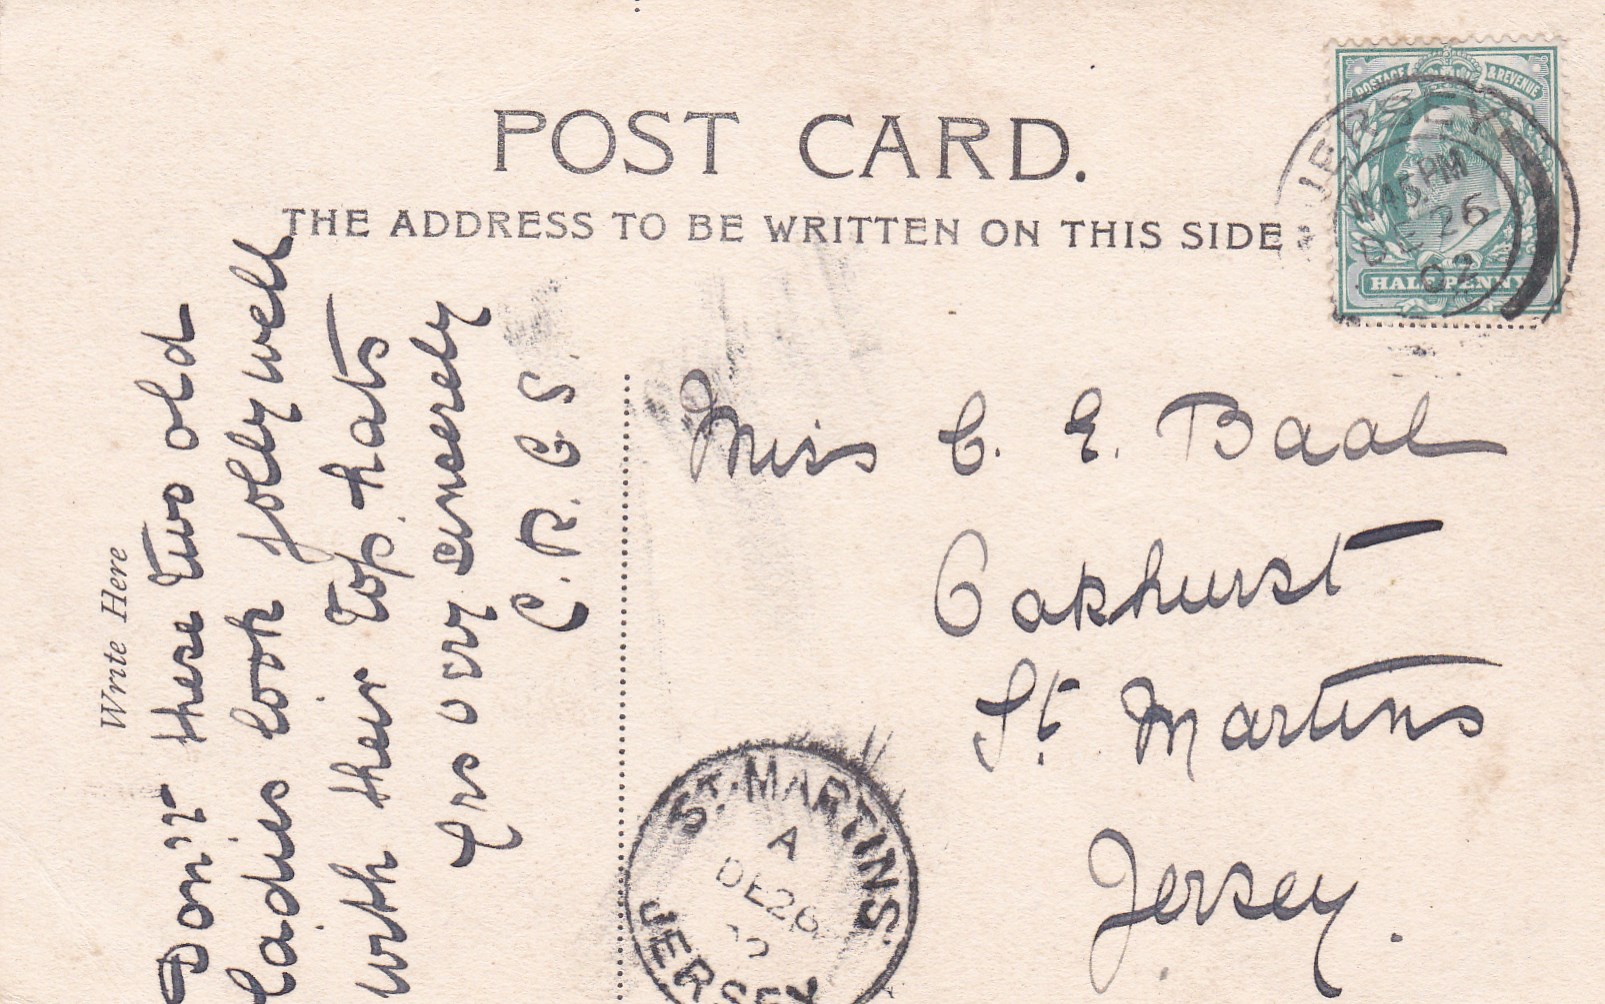 POST CARD.
THE ADDRESS TO BE WRITTEN ON THIS SIDE
POSTAGE & REVENUE
HALF PENNY
JERSEY
45 PM
DE 26
02
Write Here
Don't these two old
ladies look jolly well
with their top hats
Yrs very sincerely
C. R. C S.
Miss C. E. Baal
Oakhurst
St. Martins
Jersey.
ST. MARTINS
A
DE 26
02
JERSEY